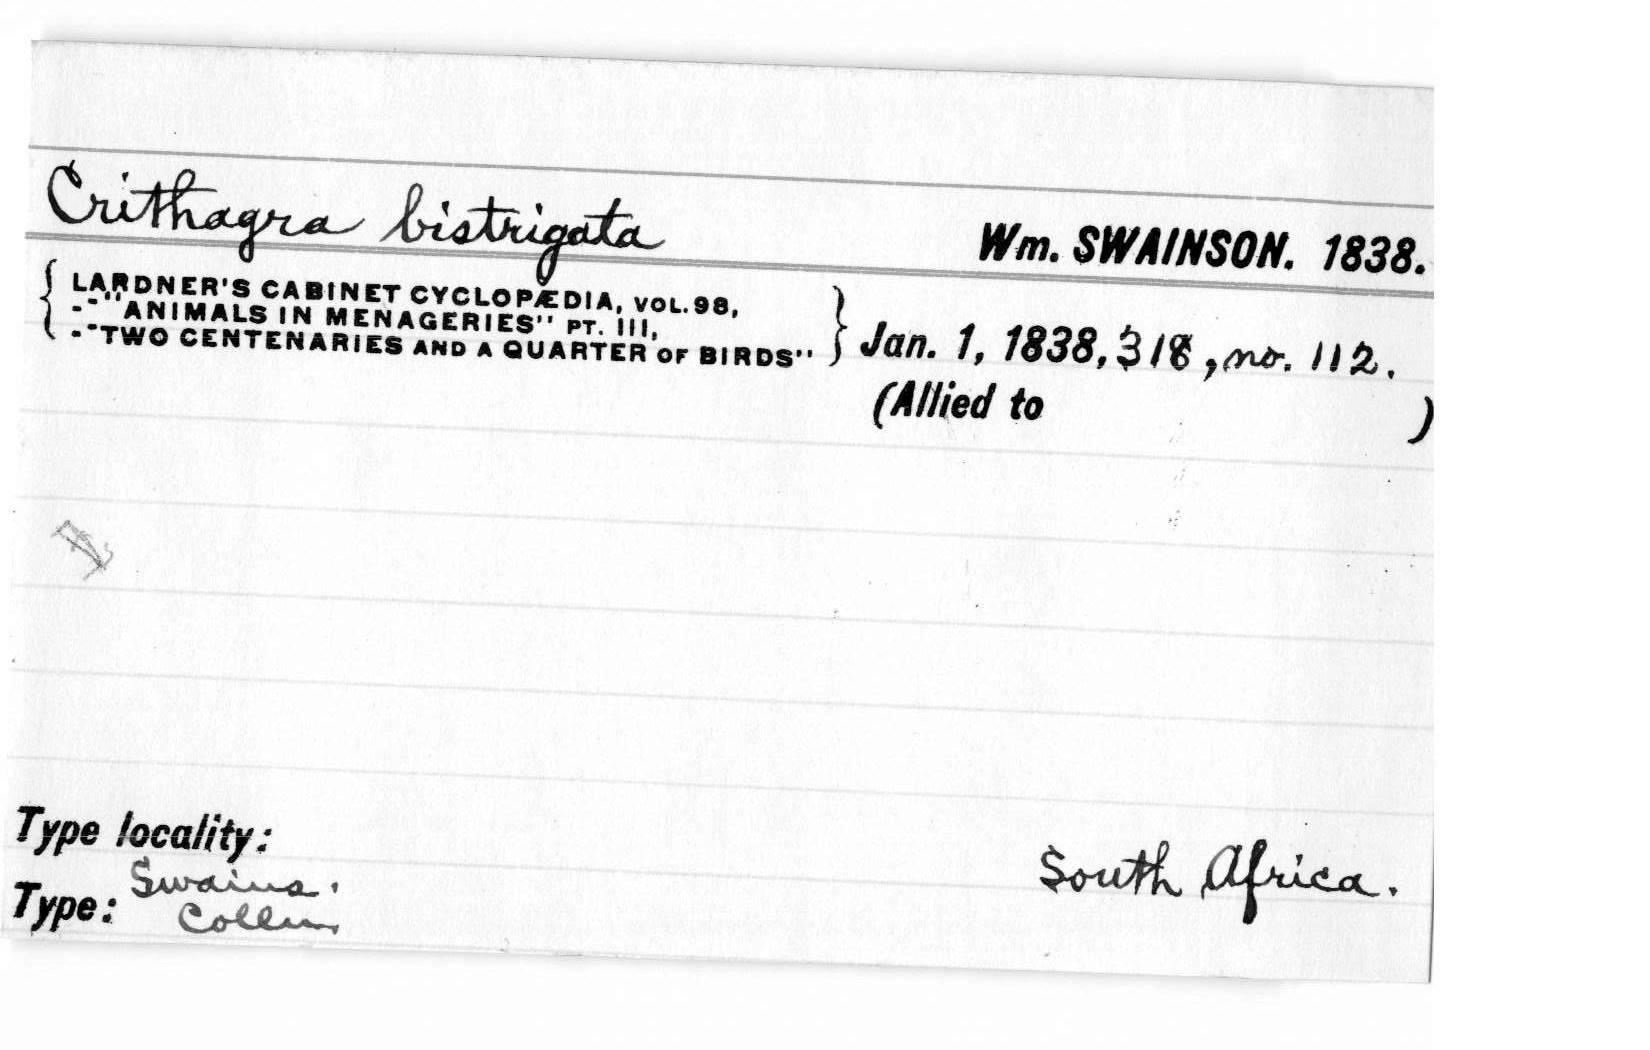 Crithagra bistrigata Wm. SWAINSON. 1838.
LARDNER'S CABINET CYCLOPÆDIA, VOL. 98,
--"ANIMALS IN MENAGERIES" PT. III,
--"TWO CENTENARIES AND A QUARTER OF BIRDS"
Jan. 1, 1838, 318, no. 112.
(Allied to )
Type locality: South Africa.
Swains.
Type: Colln